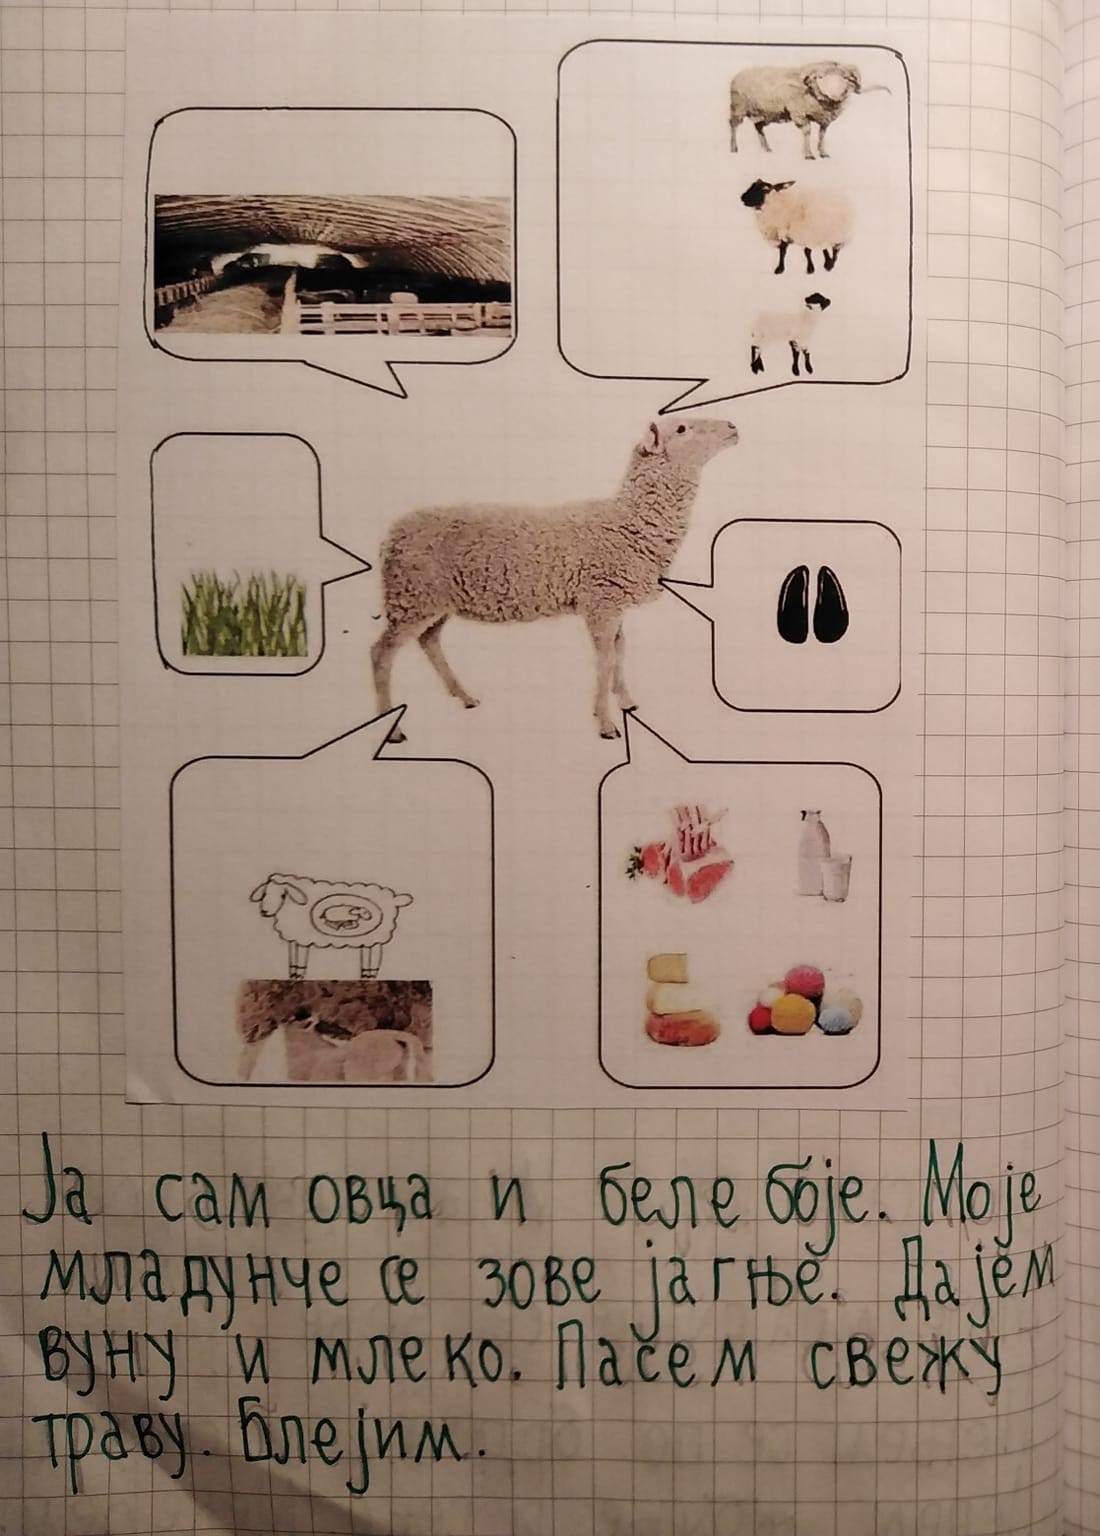 Ја сам овца и беле боје. Моје
младунче се зове јагње. Дајем
вуну и млеко. Пасем свежу
траву. Блејим.